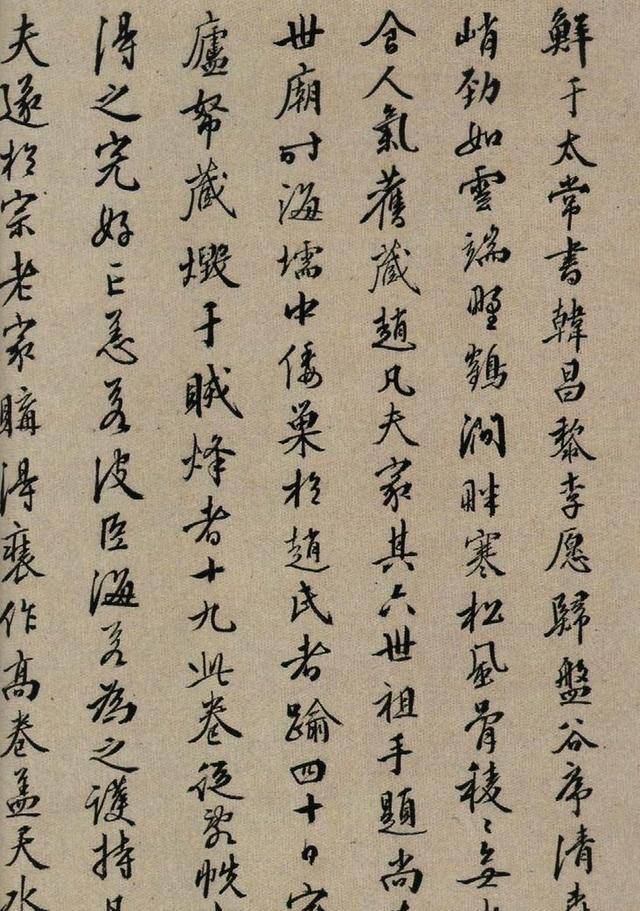 鮮于太常書韓昌黎李愿歸盤谷序清
峭勁如雲端野鶴澗畔寒松風骨稜〻無
含人氣舊藏趙凡夫家其六世祖手題尚
世廟時海壖中倭巢於趙氏者踰四十日
廬帑藏燬于賊烽者十九此卷從敗帙
得之完好亡恙若波臣海若為之護持
夫遂於宗老家購得裒作高卷蓋天水